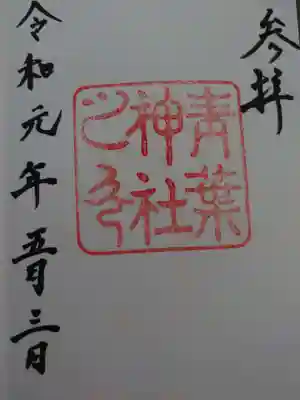 参拝
青葉
神社
之印
令和元年五月三日